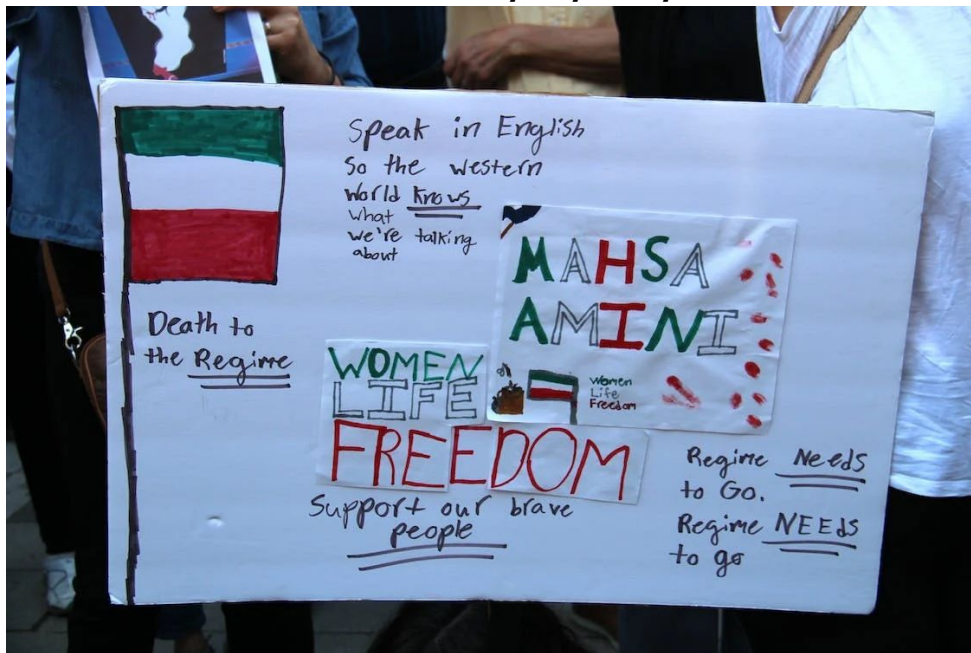 Speak in English
So the western
World Knows
what
we're talking
about
MAHSA
AMINI
Women
Life
Freedom
Death to
the Regime
WOMEN
LIFE
FREEDOM
Support our brave
people
Regime Needs
to Go.
Regime NEEDS
to go